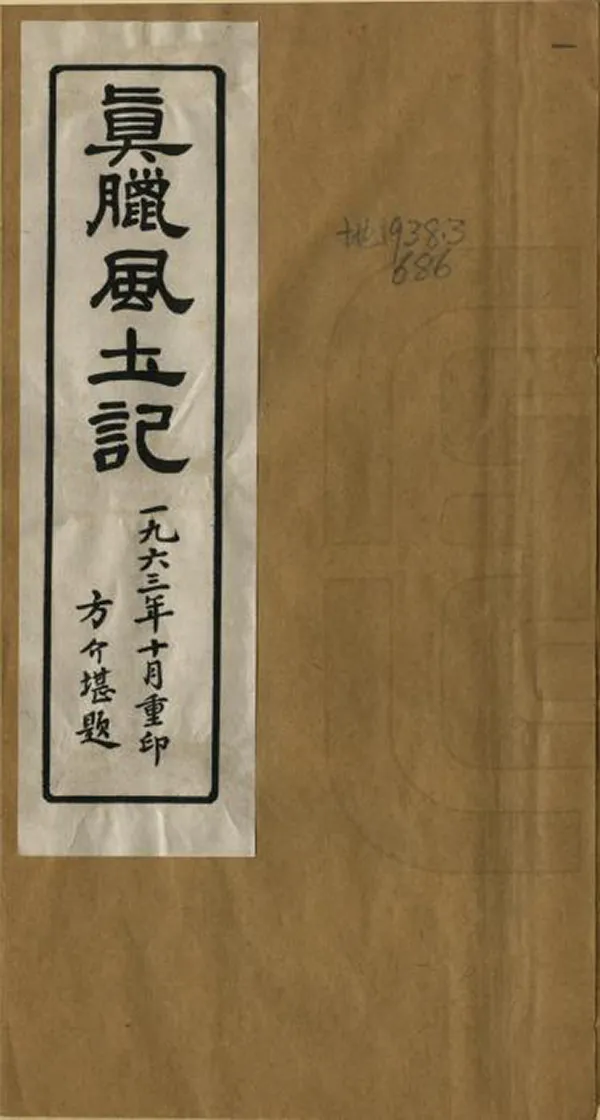 真臘風土記
一九六三年十月重印
方介堪題
地938.3
686
一